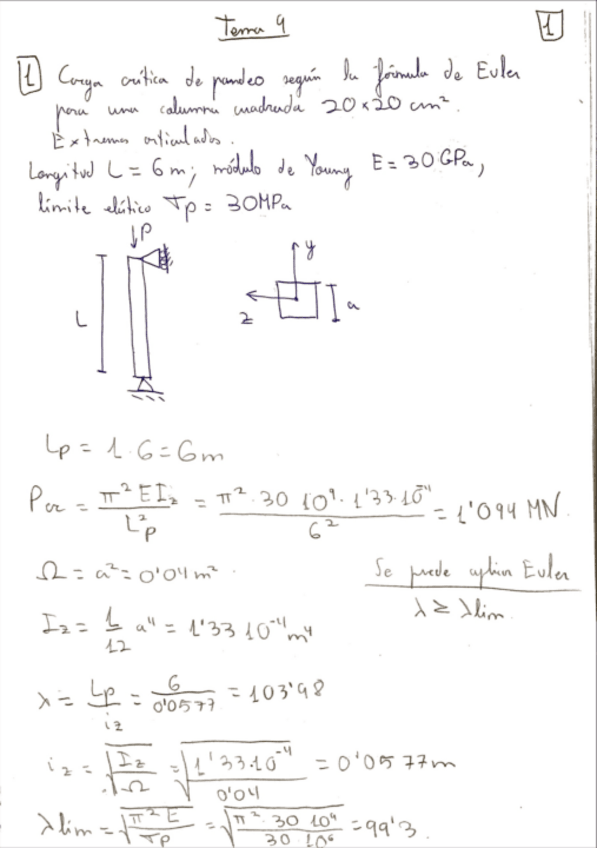 Tema 9
1
1 Carga crítica de pandeo según la fórmula de Euler
para una columna cuadrada 20×20 cm².
Extremos articulados.
Longitud L = 6 m; módulo de Young E = 30 GPa,
límite elástico σp = 30MPa
↓P
L
y
z
a
Lp = 1·6 = 6m
Pcr = π² E Iz / Lp² = π²·30 10⁹·1'33·10⁻⁴ / 6² = 1'094 MN.
Ω = a² = 0'04 m²
Se puede aplicar Euler
λ ≥ λlim.
Iz = 1/12 a⁴ = 1'33 10⁻⁴ m⁴
λ = Lp / iz = 6 / 0'0577 = 103'98
iz = √(Iz / Ω) = √(1'33·10⁻⁴ / 0'04) = 0'0577m
λlim = √(π² E / σp) = √(π²·30 10⁹ / 30 10⁶) = 99'3.